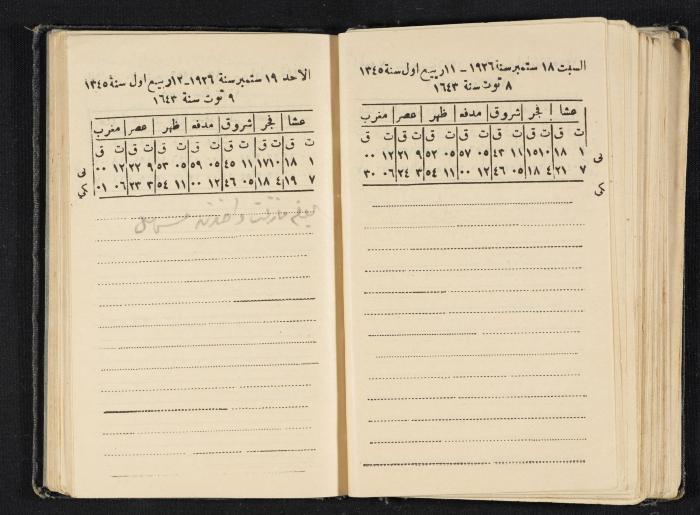 السبت ١٨ ستمبر سنة ١٩٢٦ – ١١ ربيع اول سنة ١٣٤٥
٨ توت سنة ١٦٤٣
عشا فجر شروق مدفه ظهر عصر مغرب
ت ق ت ق ت ق ت ق ت ق ت ق ت ق
١ ١٨ ١٠ ١٥ ١١ ٤٣ ٠٥ ٥٧ ٠٥ ٥٢ ٩ ٢١ ١٢ ٠٠
٧ ٢١ ٤ ١٨ ٠٥ ٤٦ ١٢ ٠٠ ١١ ٥٤ ٣ ٢٤ ٠٦ ٣٠
الاحد ١٩ ستمبر سنة ١٩٢٦ – ١٢ ربيع اول سنة ١٣٤٥
٩ توت سنة ١٦٤٣
عشا فجر شروق مدفه ظهر عصر مغرب
ت ق ت ق ت ق ت ق ت ق ت ق ت ق
١ ١٨ ١٠ ١٧ ١١ ٤٥ ٠٥ ٥٩ ٠٥ ٥٣ ٩ ٢٢ ١٢ ٠٠
٧ ١٩ ٤ ١٨ ٠٥ ٤٦ ١٢ ٠٠ ١١ ٥٤ ٣ ٢٣ ٠٦ ٠١